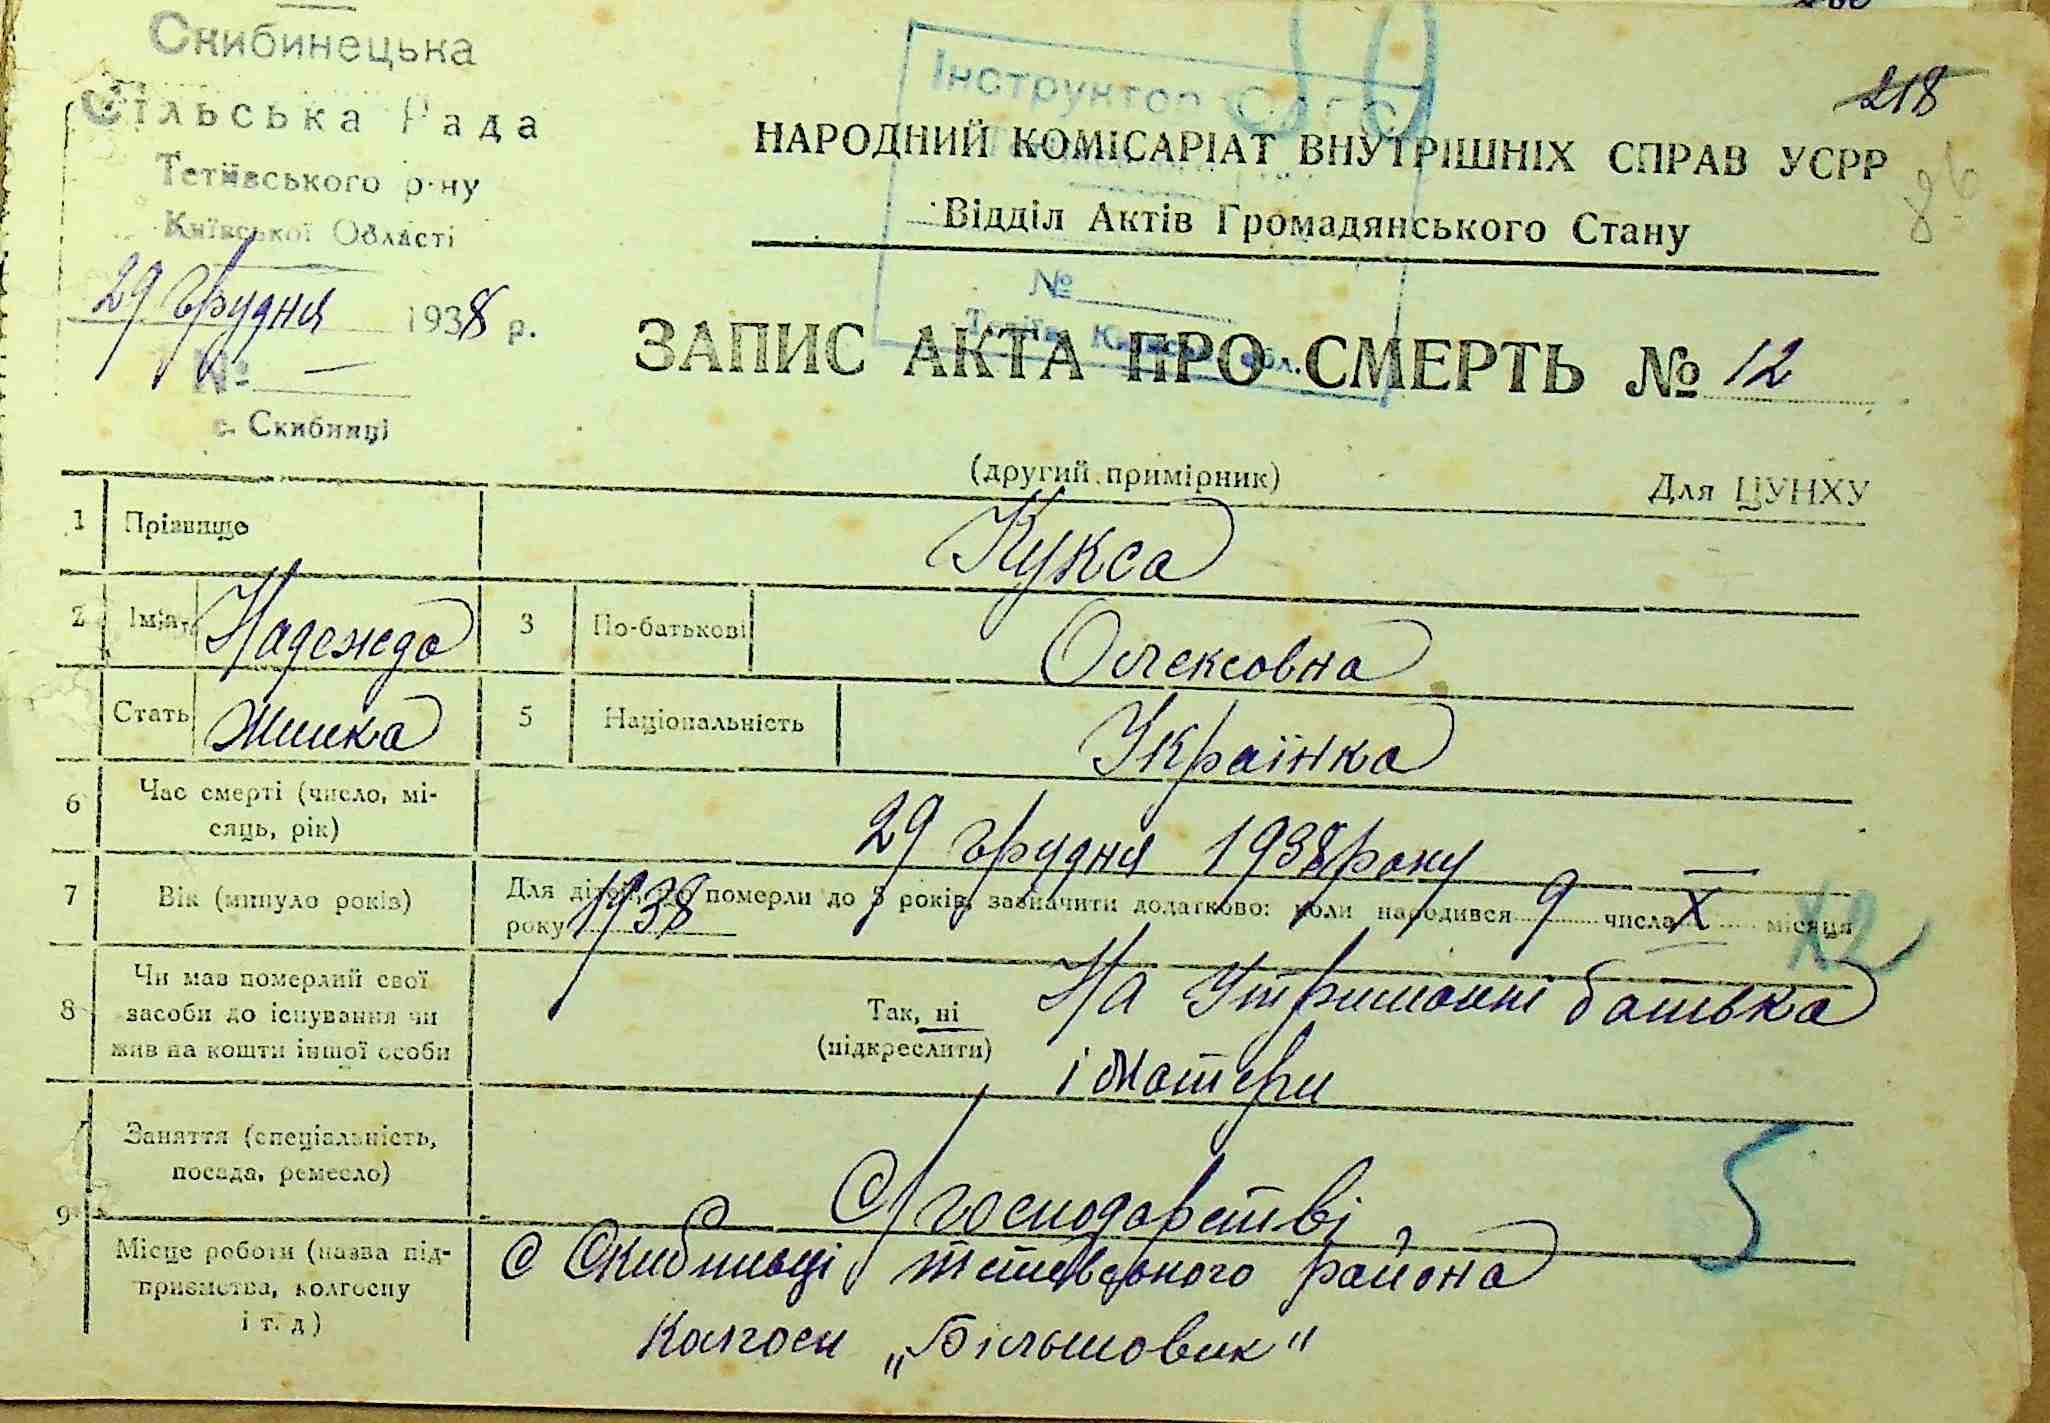 Скибинецька
Сільська Рада
Тетіївського р-ну
Київської Області
29 грудня 1938 р.
№ —
с. Скибинці
Інструктор
№
Тетіїв, обл.
218
86
НАРОДНИЙ КОМІСАРІАТ ВНУТРІШНІХ СПРАВ УСРР
Відділ Актів Громадянського Стану
ЗАПИС АКТА ПРО СМЕРТЬ № 12
(другий примірник) Для ЦУНХУ
1 Прізвище Кукса
2 Ім'я Надежда 3 По-батькові Олексовна
Стать Жинка 5 Національність Українка
6 Час смерті (число, мі-
сяць, рік) 29 грудня 1938 року
7 Вік (минуло років) Для дітей, що померли до 5 років, зазначити додатково: коли народився 9 числа X місяця
року 1938
8 Чи мав померлий свої
засоби до існування чи
жив на кошти іншої особи
Так, ні
(підкреслити)
На Утриманні батька
і матери
9 Заняття (спеціальність,
посада, ремесло)
С/господарстві
5
Місце роботи (назва під-
приємства, колгоспу
і т. д)
с Скибинці тетіевського района
Колгосп „Більшовик"